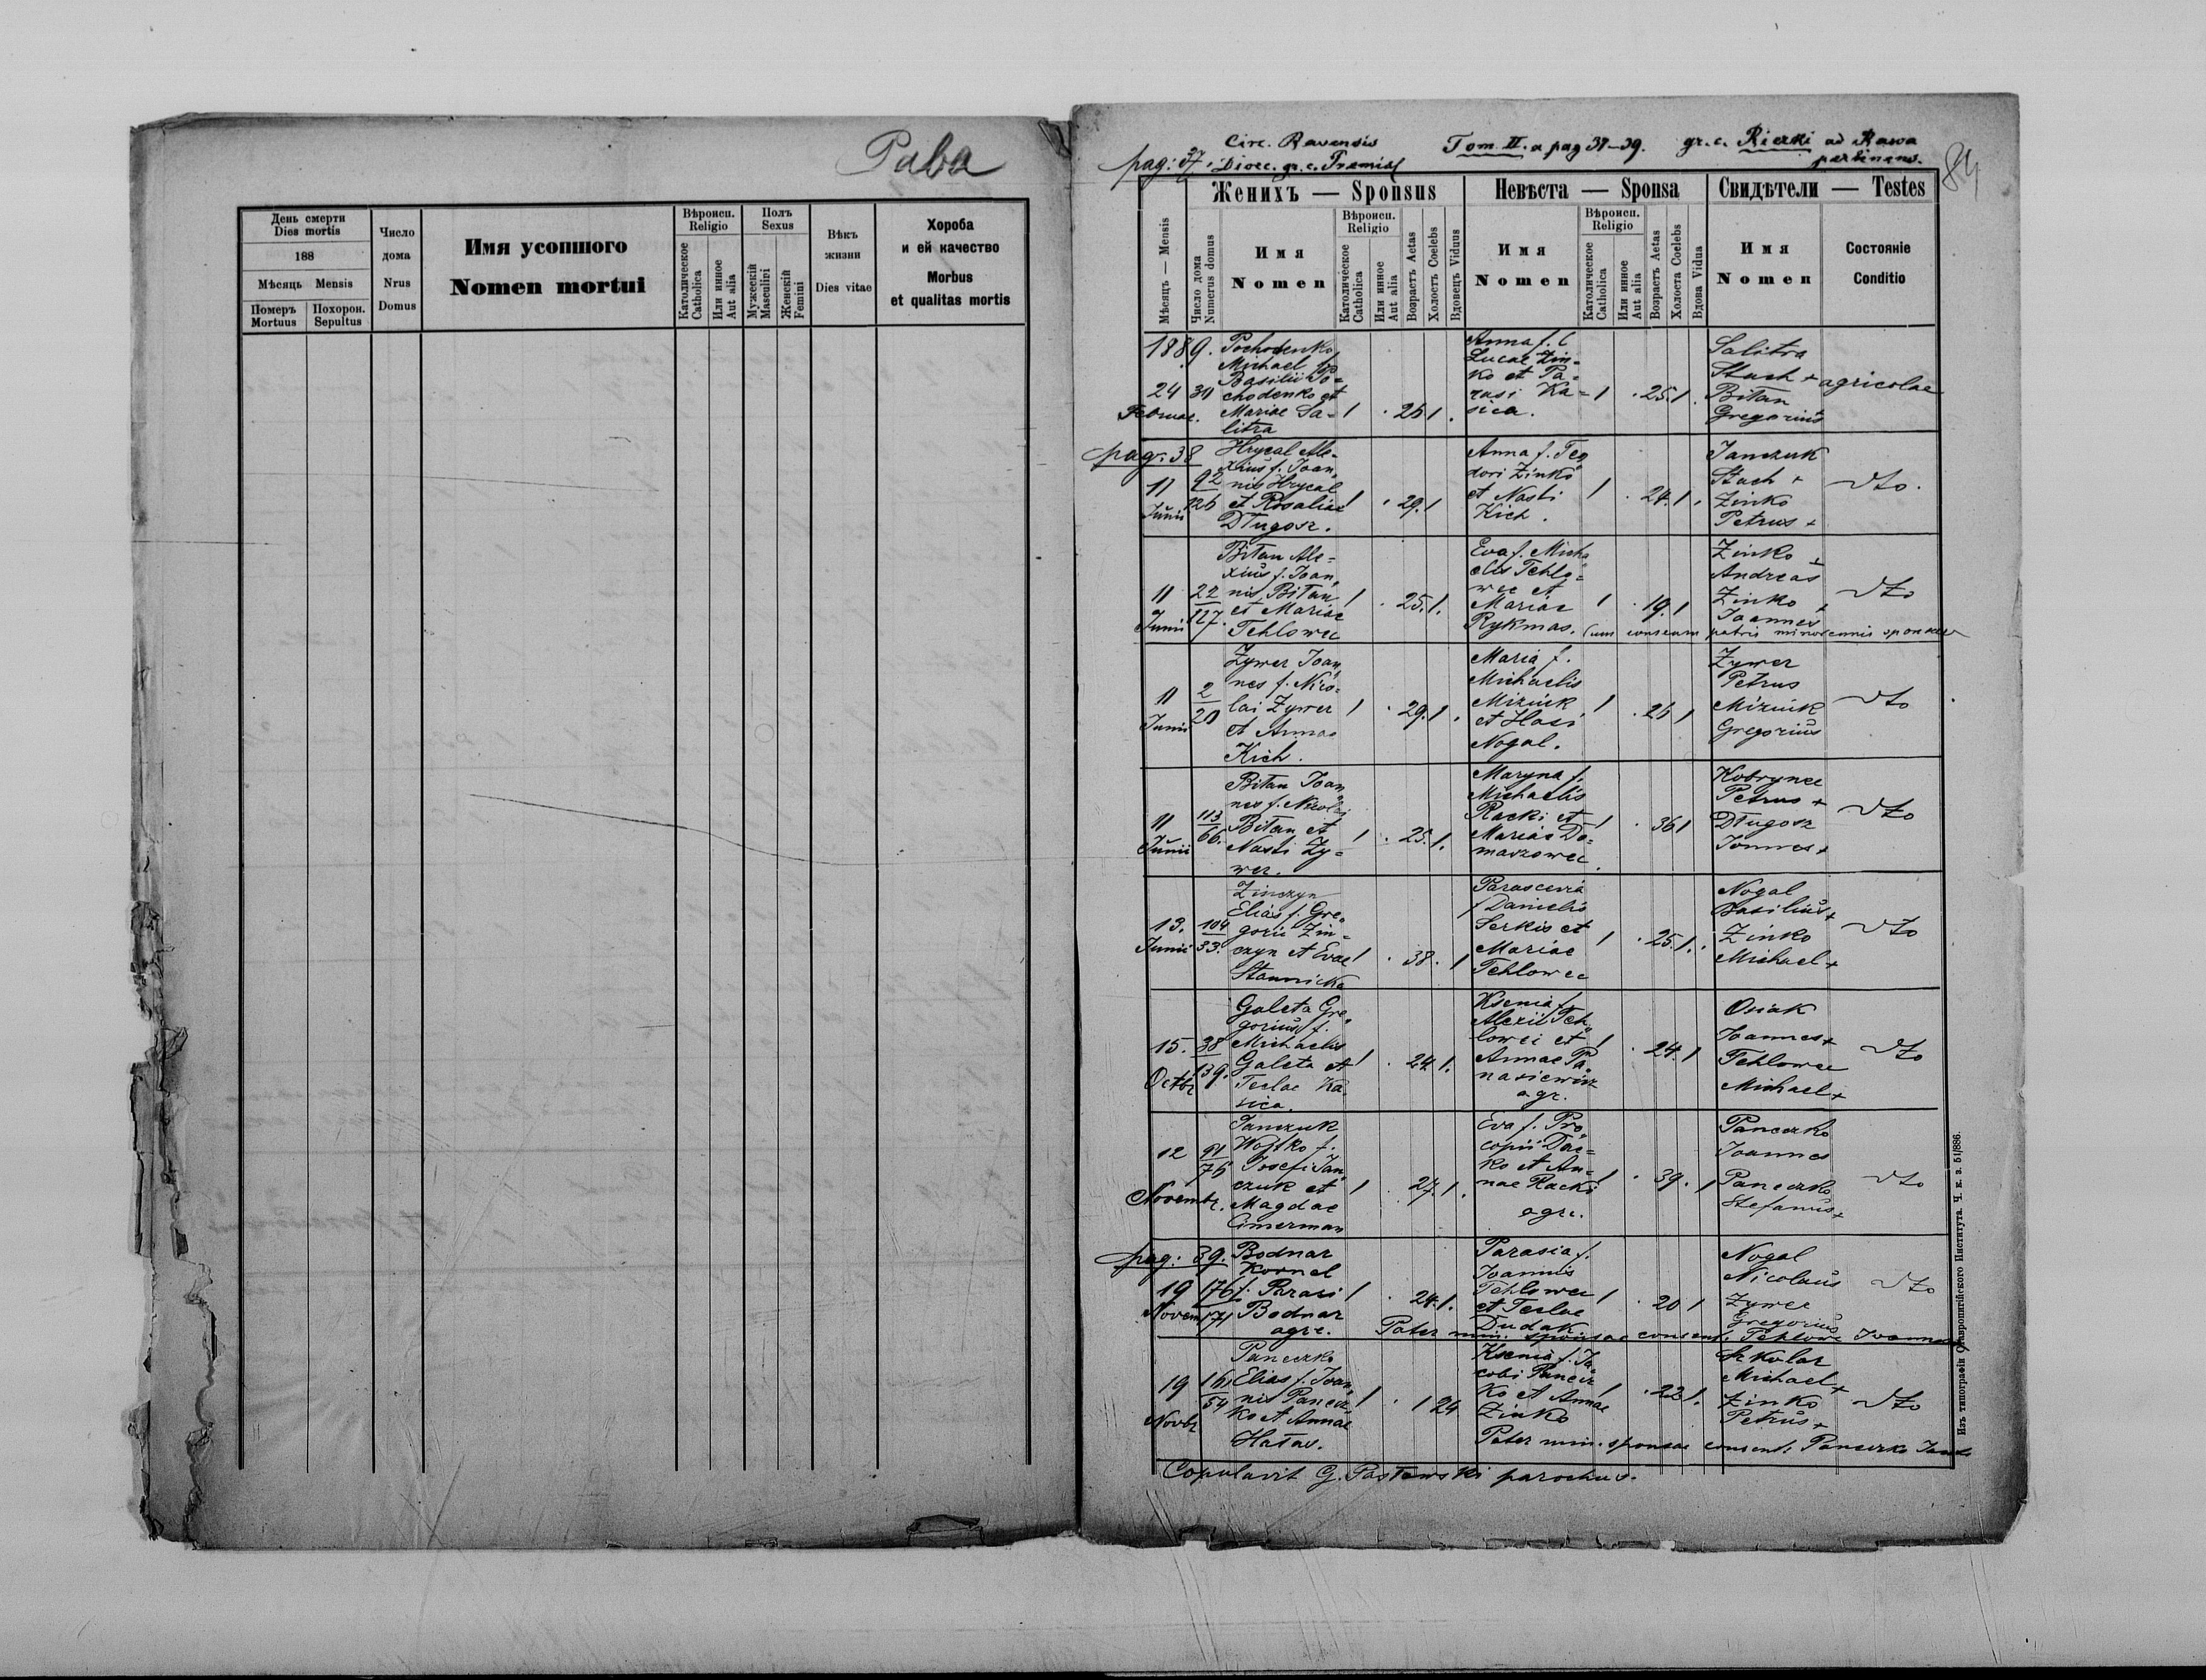 Paba
День смерти
Dies mortis
188
Мѣсяць Mensis
Померъ
Mortuus
Похорон.
Sepultus
Число
дома
Nrus
Domus
Имя усопшого
Nomen mortui
Вѣроисп.
Religio
Католическое
Catholica
Или инное
Aut alia
Полъ
Sexus
Мужескій
Masculini
Женскій
Femini
Вѣкъ
жизни
Dies vitae
Хороба
и ей качество
Morbus
et qualitas mortis
Circ. Ravensis Tom II. a pag 37-39. gr. c. Rieczki ad Rawa
pag: 37. Dioec. gr. c. Premisl pertinens.
84
Женихъ — Sponsus
Невѣста — Sponsa
Свидѣтели — Testes
Мѣсяць — Mensis
Число дома
Numerus domus
Имя
Nomen
Вѣроисп.
Religio
Католическое
Catholica
Или инное
Aut alia
Возрастъ Aetas
Холостъ Coelebs
Вдовецъ Viduus
Имя
Nomen
Вѣроисп.
Religio
Католическое
Catholica
Или инное
Aut alia
Возрастъ Aetas
Холоста Coelebs
Вдова Vidua
Имя
Nomen
Состояніе
Conditio
1889.
24 30
Februar.
Pochodenko
Michael f.
Basilii Po=
chodenko et
Mariae Sa-
litra
1 . 26 1 .
Anna f.
Lucae Zin=
ko et Pa=
rasi Ka=
sica.
1 . 25. 1 .
Salitra
Stach +
Bitan
Gregorius +
agricolae
pag: 38
11 92
Junii 126
Hrycal Ale-
xius f. Joan,
nis Hrycal
et Rosaliae
Długosz.
1 . 29. 1
Anna f. Teo
dori Zinko
et Nasti
Kich.
1 . 24. 1 .
Janczuk
Stach +
Zinko
Petrus +
dto.
11 22
Junii 117.
Bitan Ale-
xius f. Joan,
nis Bitan
et Mariae
Tehlowec
1 . 25. 1.
Eva f. Micha
elis Tehlo=
wec et
Mariae
Rykmas.
1 . 19. 1
Zinko +
Andreas
Zinko +
Joannes
dto
Cum consensu patris minorennis sponsae
11 2
Junii 20
Zywer Joan,
nes f. Nico=
lai Zywer
et Annae
Kich.
1 . 29. 1 .
Maria f.
Michaelis
Miziuk
et Hasi
Nogal.
1 . 26 1
Zywer
Petrus
Miziuk
Gregorius
dto
11 113
Junii 66.
Bitan Joan
nes f. Nicolai
Bitan et
Nasti Zy=
wer.
1 . 25. 1.
Maryna f.
Michaelis
Racki et
Mariae Do=
maszowec.
1 . 36 1
Kobrynec
Petrus +
Długosz
Joannes +
dto
13. 104
Junii 33.
Zinczyn
Elias f. Gre,
gorii Zin=
czyn et Evae
Stawnicka
1 . 38. 1
Parascevia
f Danielis
Serkis et
Mariae
Tehlowec
1 . 25. 1.
Nogal
Basilius +
Zinko
Michael +
dto
15. 38
Octbr 139.
Galeta Gre,
gorius f.
Michaelis
Galeta et
Teclae Ka,
sica.
1 . 24. 1.
Ksenia f.
Alexii Teh,
lowec et
Annae Pa,
nasiewicz
agr.
1 . 24. 1
Osiak
Joannes +
Tehlowec
Michael +
dto
12 91
Novembr. 76
Janczuk
Wojtko f.
Josefi Jan,
czuk et
Magdae
Cimerman
1 . 27. 1.
Eva f. Pro,
copii Dac=
ko et An=
nae Racki
agr.
1 . 39. 1
Paneczko
Joannes
Paneczko
Stefanus +
dto
pag: 39.
19 176
Novem 171
Bodnar
Kornel
f. Parasi
Bodnar
agr.
1 . 24. 1.
Parasia f.
Joannis
Tehlowec
et Teclae
Dudak
1 . 20 1
Nogal
Nicolaus
Zywer
Gregorius
dto
Pater min. sponsae consent. Tehlowec Joannes
19 161
Novbr 54
Paneczko
Elias f. Joan,
nis Panecz
ko et Annae
Hatas.
1 . 1 24
Ksenia f. Ja,
cobi Panecz
ko et Annae
Zinko
1 . 22 1.
Szkolar
Michael +
Zinko
Petrus +
dto
Pater min. sponsae consent: Paneczko Jacob
Copulavit G. Pastawski parochus.
Изъ типографіи Ставропигійского Института. Ч. к. з. 51/886.